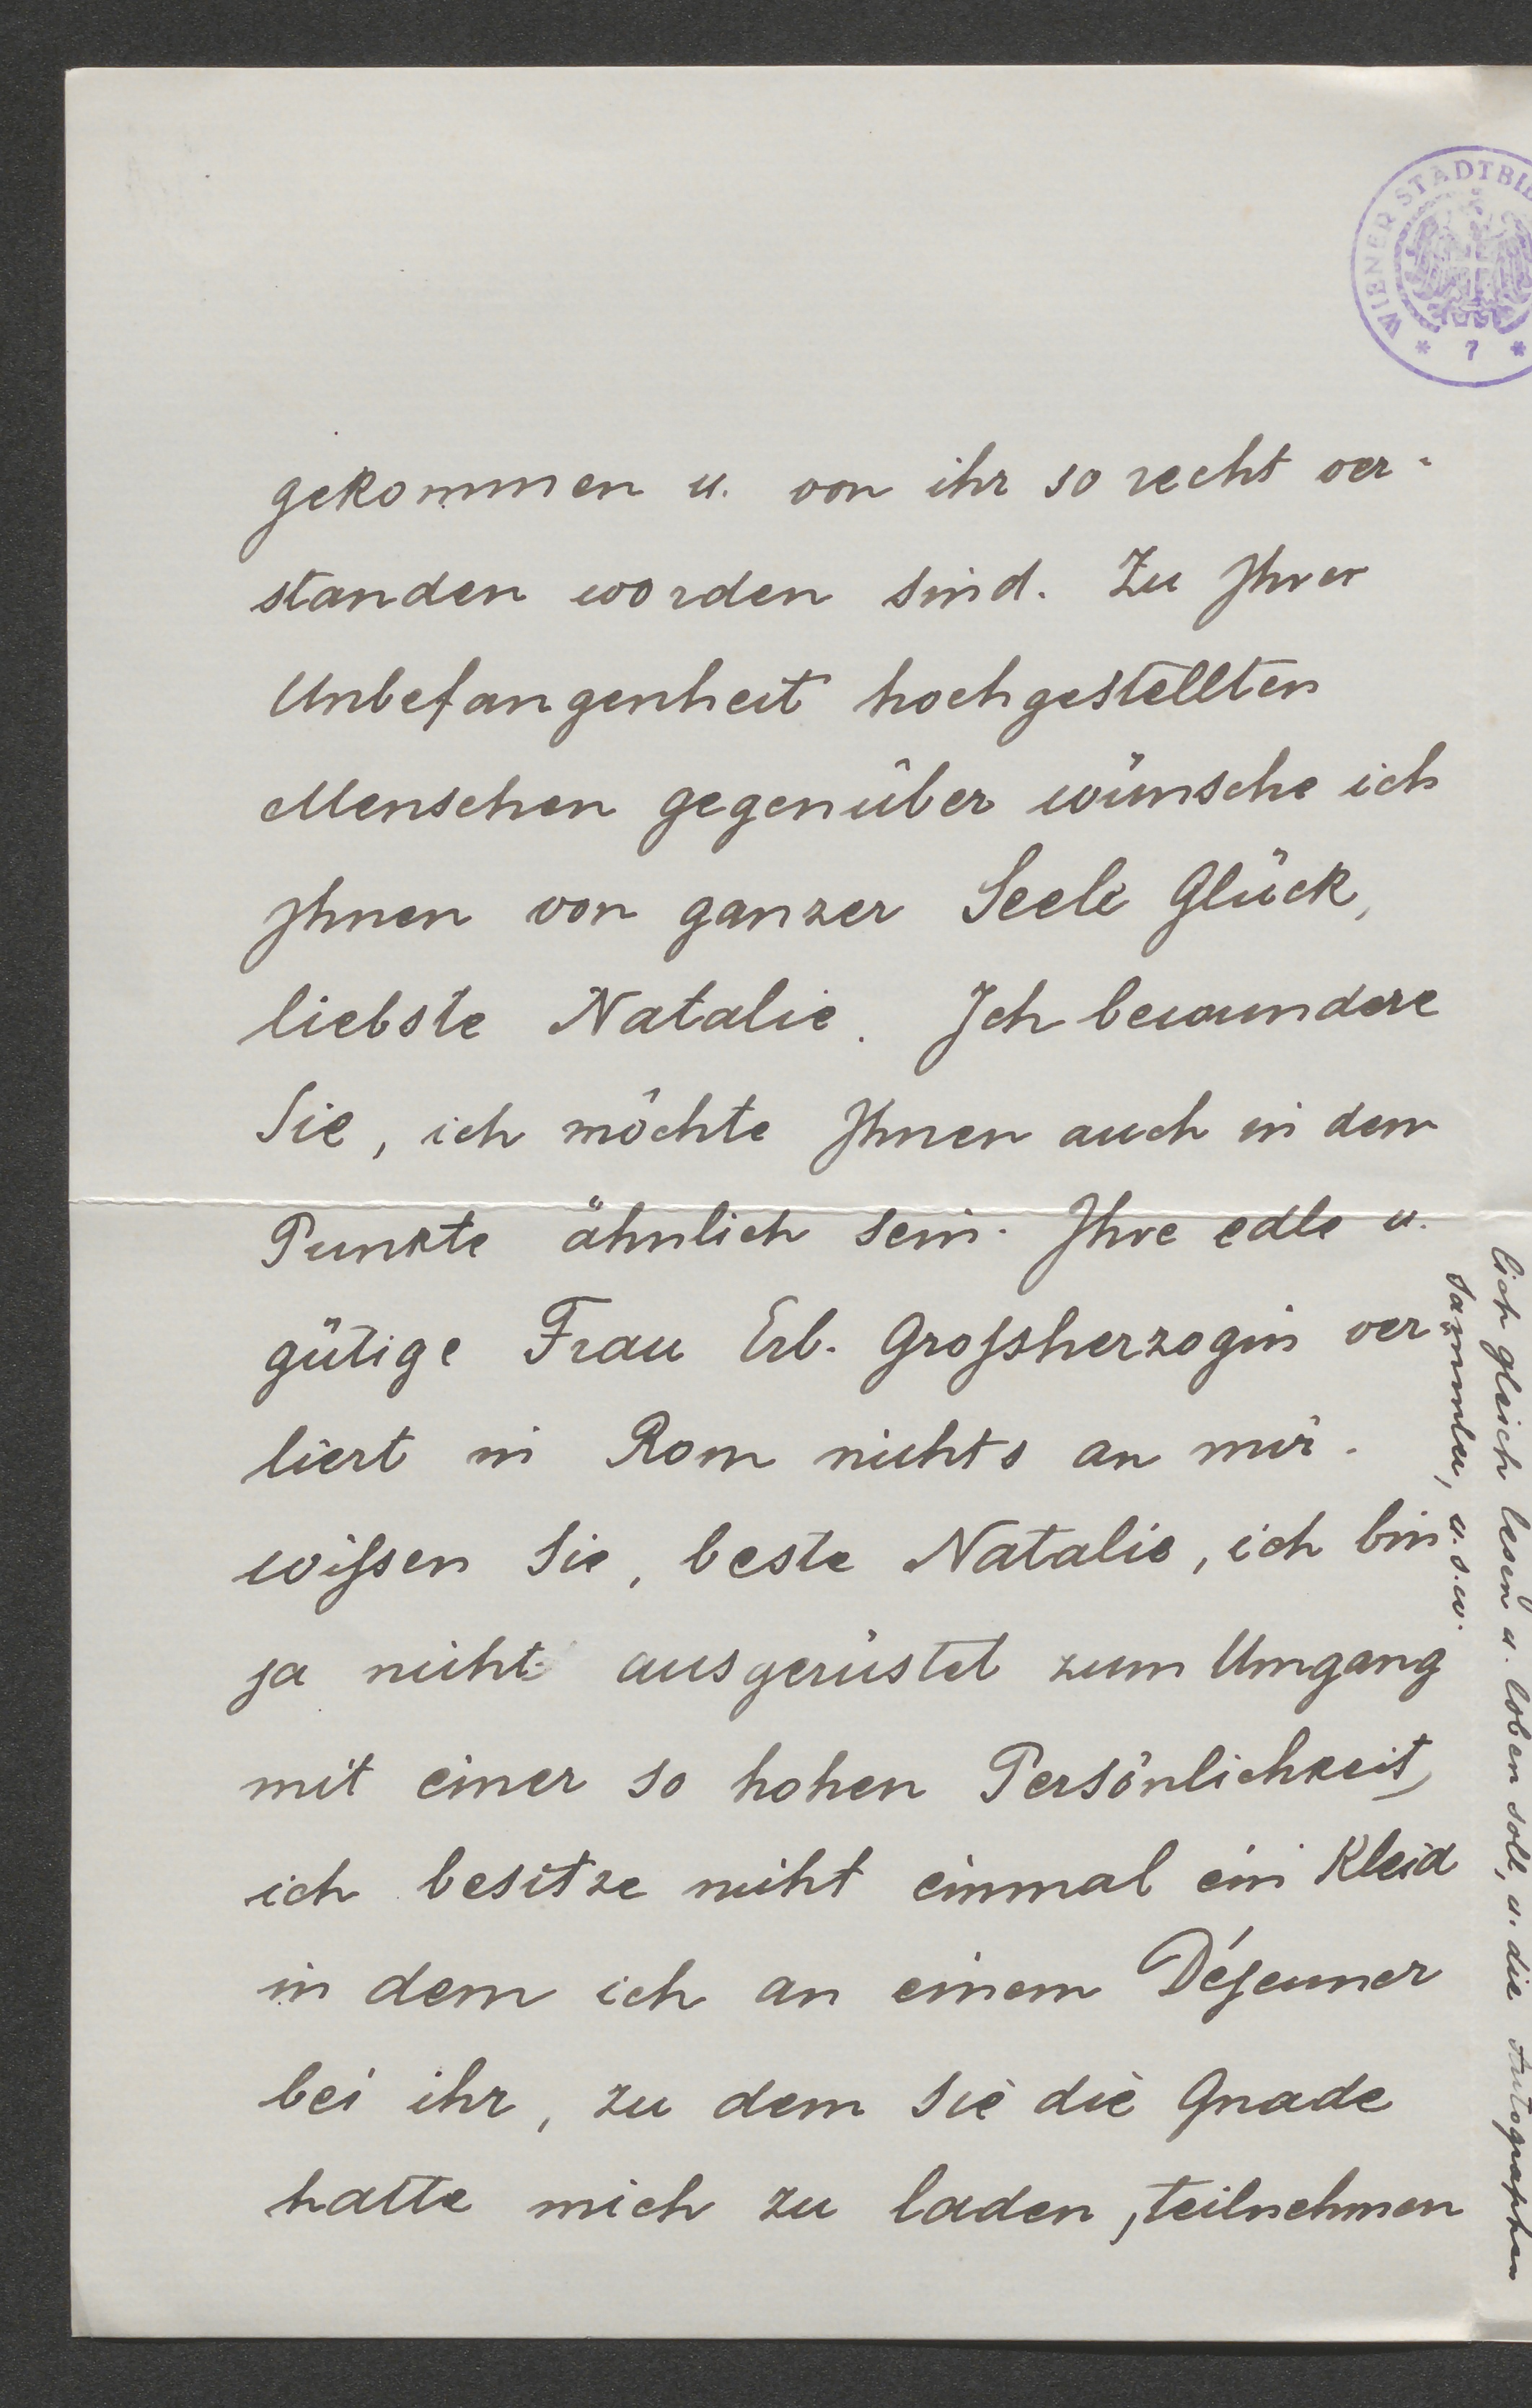 WIENER STADTBI
* 7 *
gekommen u. von ihr so recht ver-
standen worden sind. Zu Ihrer
Unbefangenheit hochgestellten
Menschen gegenüber wünsche ich
Ihnen von ganzer Seele Glück,
liebste Natalie. Ich bewundere
Sie, ich möchte Ihnen auch in dem
Punkte ähnlich sein. Ihre edle u.
gütige Frau Erb. Großsherzogin ver-
liert in Rom nichts an mir.
wißsen Sie, beste Natalie, ich bin
ja nicht ausgerüstet zum Umgang
mit einer so hohen Persönlichkeit,
ich besitze nicht einmal ein Kleid
in dem ich an einem Déjeuner
bei ihr, zu dem Sie die Gnade
hatte mich zu laden, teilnehmen
lich gleich lesen u. loben soll, u. die Autographen
Sammler, u.s.w.